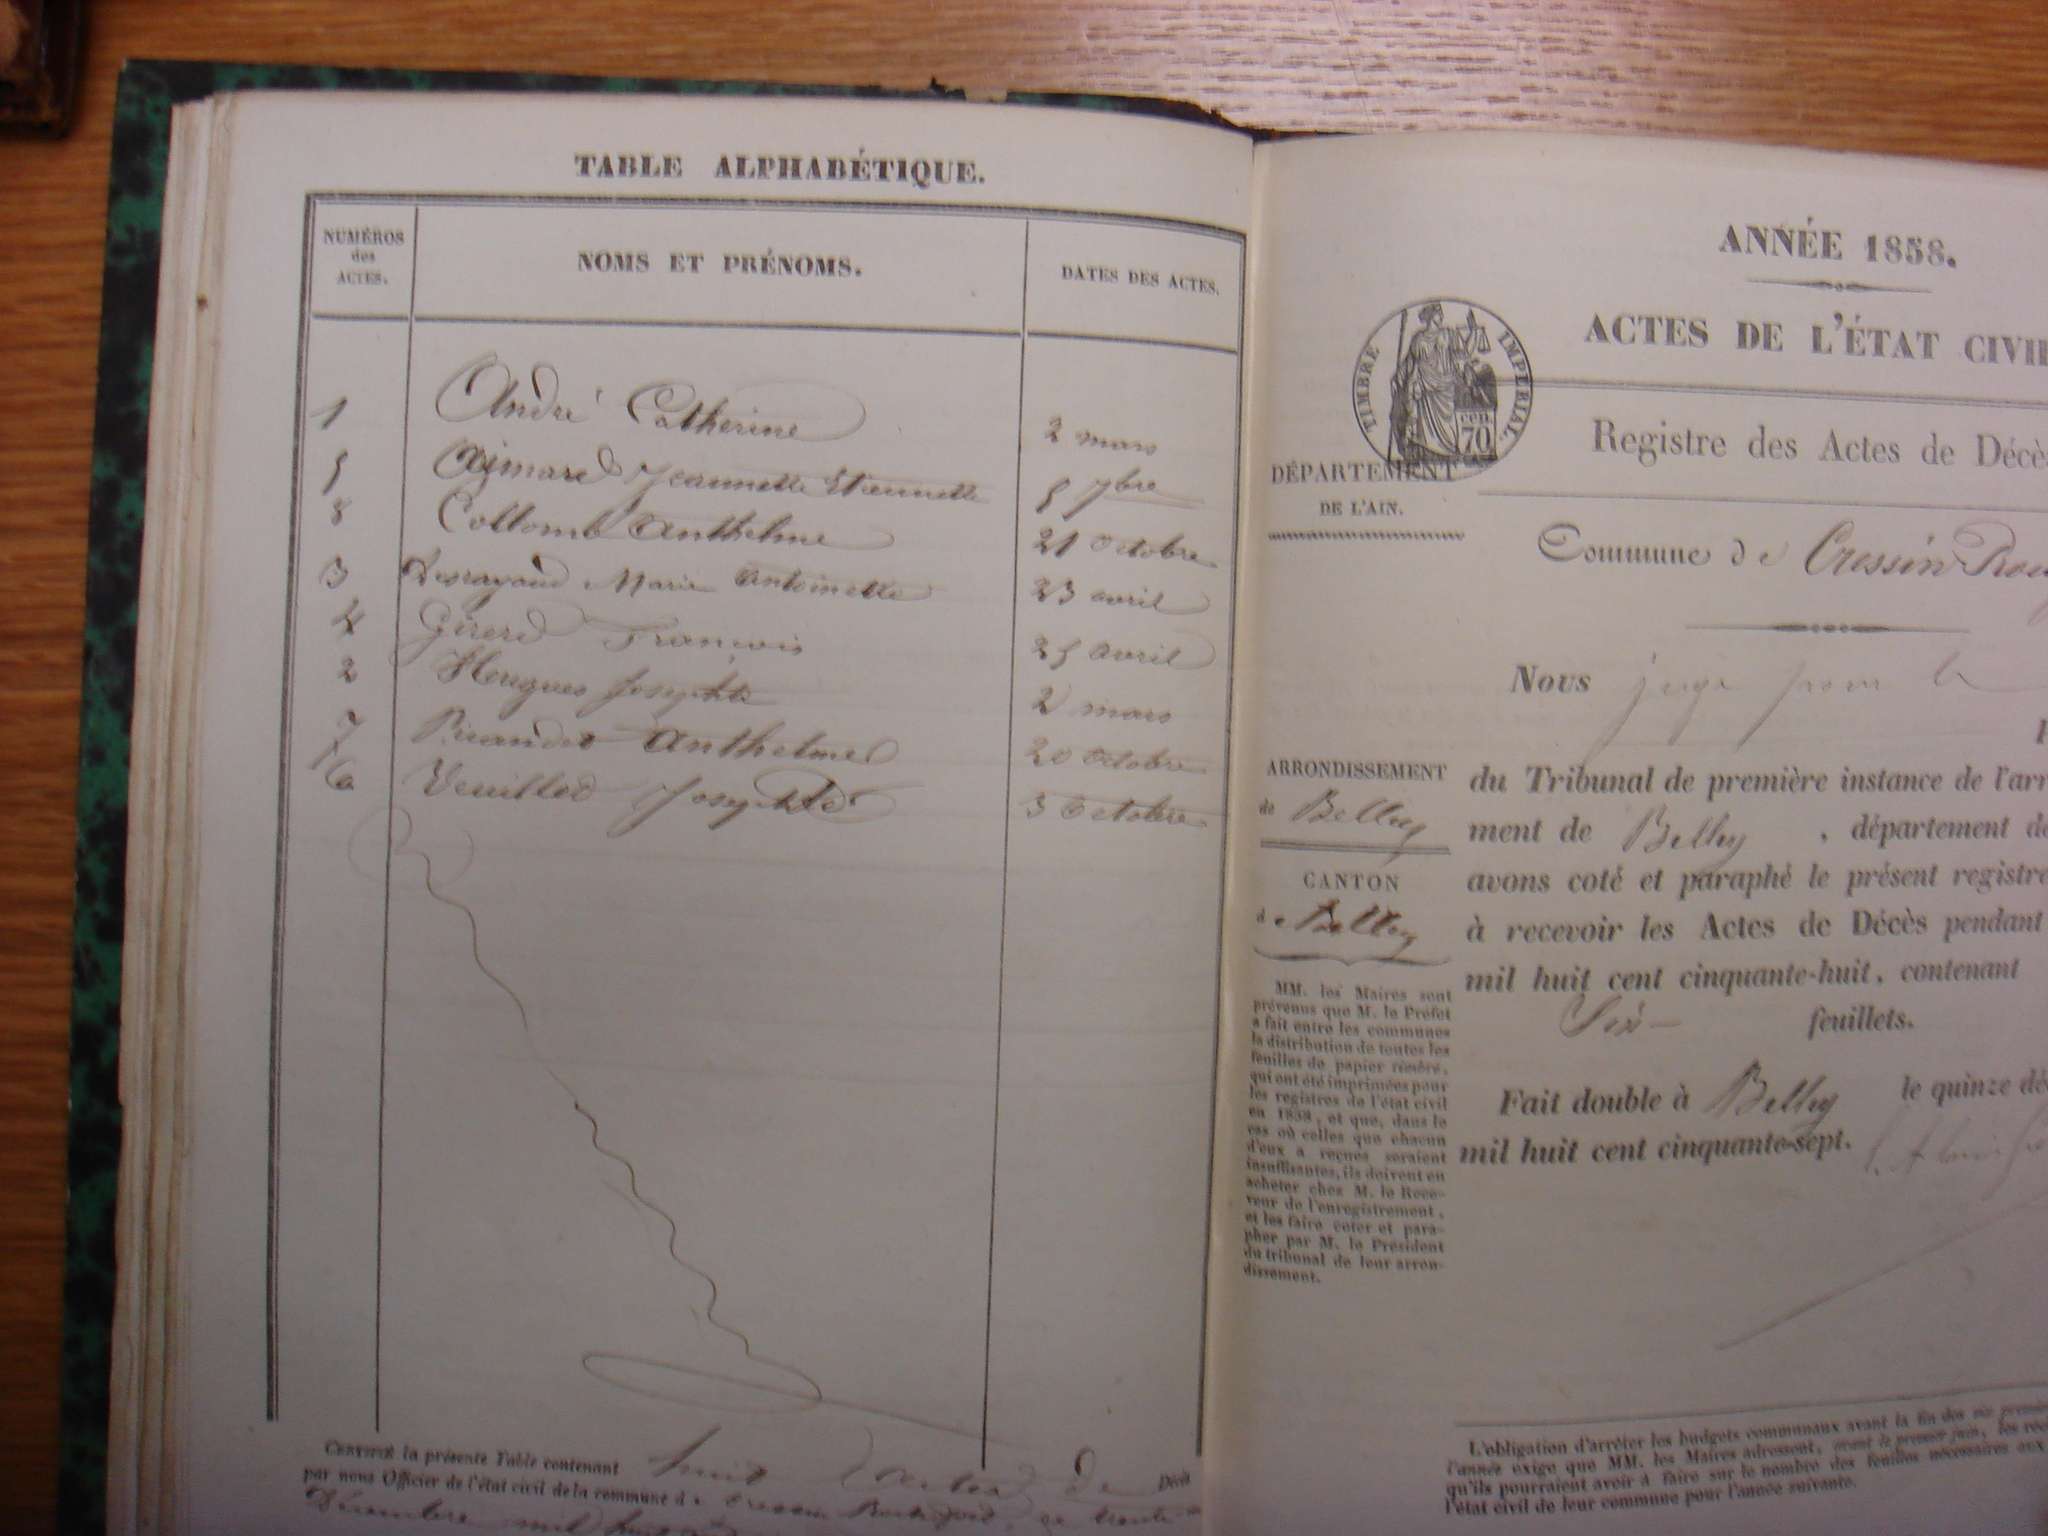 TABLE ALPHABÉTIQUE.
NUMÉROS
des
ACTES.
NOMS ET PRÉNOMS.
DATES DES ACTES.
1 André Catherine 2 mars
5 Aimard Jeannette Etiennette 5 7bre
8 Collomb Anthelme 21 octobre
3 Marie Antoinette 23 avril
4 Girerd François 25 avril
2 Hugues Josephte 2 mars
7 Anthelme 20 octobre
6 Veuillod Josephte 3 octobre
CERTIFIÉ la présente Table contenant huit actes de Décès
par nous Officier de l'état civil de la commune de Cressin Rochefort, ce trente
Décembre mil huit
ANNÉE 1858.
ACTES DE L'ÉTAT CIVIL
TIMBRE IMPÉRIAL.
70 cen.
Registre des Actes de Décès
DÉPARTEMENT
DE L'AIN.
Commune de Cressin
Nous juge pour le
du Tribunal de première instance de l'arr
ARRONDISSEMENT
de Belley
ment de Belley, département de
avons coté et paraphé le présent registre
CANTON
de Belley
à recevoir les Actes de Décès pendant
mil huit cent cinquante-huit, contenant
Six feuillets.
MM. les Maires sont
prévenus que M. le Préfet
a fait entre les communes
la distribution de toutes les
feuilles de papier timbré,
qui ont été imprimées pour
les registres de l'état civil
en 1858, et que, dans le
cas où celles que chacun
d'eux a reçues seraient
insuffisantes, ils doivent en
acheter chez M. le Rece-
veur de l'enregistrement,
et les faire coter et para-
pher par M. le Président
du tribunal de leur arron-
dissement.
Fait double à Belley le quinze dé
mil huit cent cinquante-sept.
L'obligation d'arrêter les budgets communaux avant la fin des six premie
l'année exige que MM. les Maires adressent, avant le premier juin, les
qu'ils pourraient avoir à faire sur le nombre des feuilles nécessaires aux
l'état civil de leur commune pour l'année suivante.